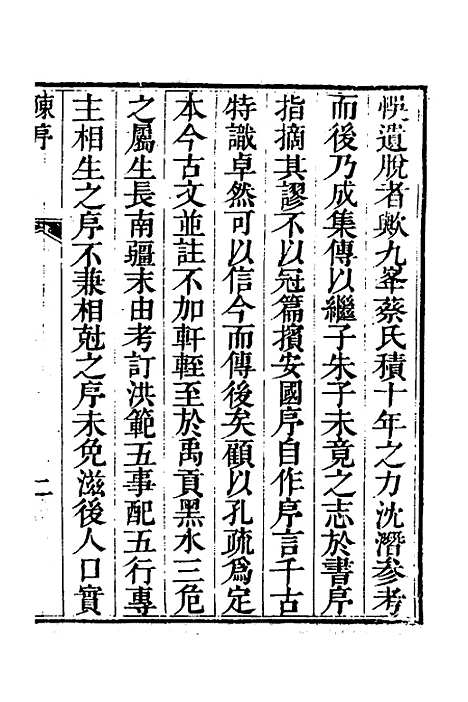 悞遺脫者歟九峯蔡氏積十年之力沈潛參考
而後乃成集傳以繼子朱子未竟之志於書序
指摘其謬不以冠篇擯安國序自作序言千古
特識卓然可以信今而傳後矣顧以孔疏為定
本今古文並註不加軒輊至於禹貢黑水三危
之屬生長南疆末由考訂洪範五事配五行專
主相生之序不兼相尅之序未免滋後人口實
陳序
二